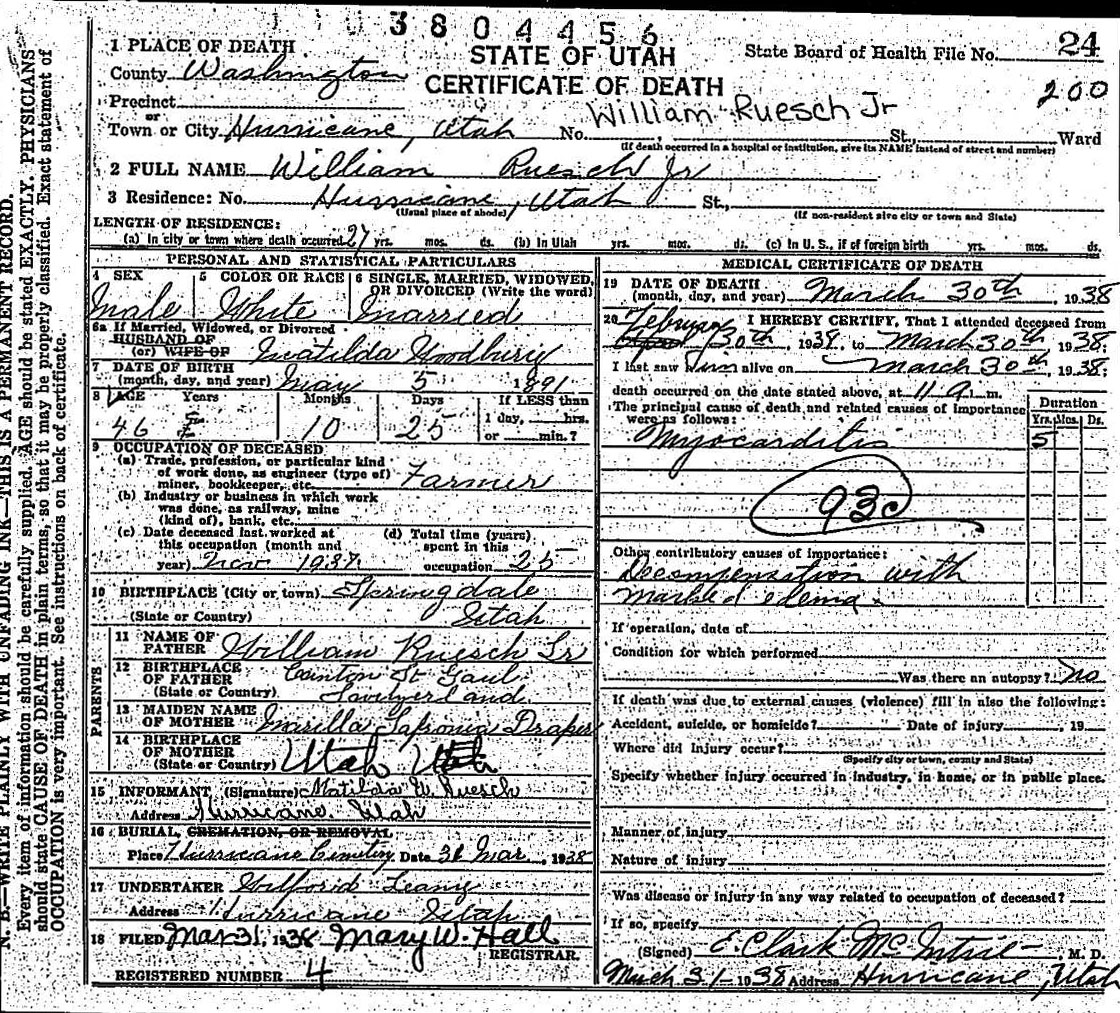 3804456
1 PLACE OF DEATH
STATE OF UTAH
State Board of Health File No. 24
County Washington
CERTIFICATE OF DEATH
200
Precinct
or
William Ruesch Jr
Town or City Hurricane, Utah No. St., Ward
(If death occurred in a hospital or institution, give its NAME instead of street and number)
2 FULL NAME William Ruesch Jr
3 Residence: No. Hurricane, Utah St.,
(Usual place of abode) (If non-resident give city or town and State)
LENGTH OF RESIDENCE:
(a) In city or town where death occurred 27 yrs. mos. ds. (b) In Utah yrs. mos. ds. (c) In U. S., if of foreign birth yrs. mos. ds.
PERSONAL AND STATISTICAL PARTICULARS
4 SEX 5 COLOR OR RACE 6 SINGLE, MARRIED, WIDOWED,
OR DIVORCED (Write the word)
Male White Married
6a If Married, Widowed, or Divorced
HUSBAND OF
(or) WIFE OF Matilda Woodbury
7 DATE OF BIRTH
(month, day, and year) May 5 1891
8 AGE Years Months Days If LESS than
1 day, hrs.
46 10 25 or min.?
9 OCCUPATION OF DECEASED
(a) Trade, profession, or particular kind
of work done, as engineer (type of)
miner, bookkeeper, etc. Farmer
(b) Industry or business in which work
was done, as railway, mine
(kind of), bank, etc.
(c) Date deceased last worked at (d) Total time (years)
this occupation (month and spent in this
year) Nov 1937 occupation 25
10 BIRTHPLACE (City or town) Springdale
(State or Country) Utah
PARENTS
11 NAME OF
FATHER William Ruesch Sr
12 BIRTHPLACE
OF FATHER Canton St Gaul
(State or Country)
13 MAIDEN NAME
OF MOTHER Marilla Draper
14 BIRTHPLACE
OF MOTHER
(State or Country) Utah Utah
15 INFORMANT (Signature) Matilda W. Ruesch
Address Hurricane Utah
16 BURIAL, CREMATION, OR REMOVAL
Place Hurricane Cemetery Date 31 Mar, 1938
17 UNDERTAKER Wilford Leany
Address Hurricane Utah
18 FILED Mar 31, 1938 Mary W. Hall
REGISTRAR.
REGISTERED NUMBER 4
MEDICAL CERTIFICATE OF DEATH
19 DATE OF DEATH
(month, day, and year) March 30th, 1938
20 February I HEREBY CERTIFY, That I attended deceased from
30th, 1938, to March 30th, 1938;
I last saw him alive on March 30th, 1938;
death occurred on the date stated above, at 11 a. m.
The principal cause of death and related causes of importance
were as follows:
Duration
Yrs. Mos. Ds.
Myocarditis 5
93c
Other contributory causes of importance:
Decompensation with
Marked edema
If operation, date of
Condition for which performed
Was there an autopsy? No
If death was due to external causes (violence) fill in also the following:
Accident, suicide, or homicide? Date of injury, 19
Where did injury occur?
(Specify city or town, county and State)
Specify whether injury occurred in industry, in home, or in public place.
Manner of injury
Nature of injury
Was disease or injury in any way related to occupation of deceased?
If so, specify
(Signed) E. Clark McIntire M. D.
March 31 1938 Address Hurricane, Utah
N. B.—WRITE PLAINLY WITH UNFADING INK—THIS IS A PERMANENT RECORD.
Every item of information should be carefully supplied. AGE should be stated EXACTLY. PHYSICIANS
should state CAUSE OF DEATH in plain terms, so that it may be properly classified. Exact statement of
OCCUPATION is very important. See instructions on back of certificate.